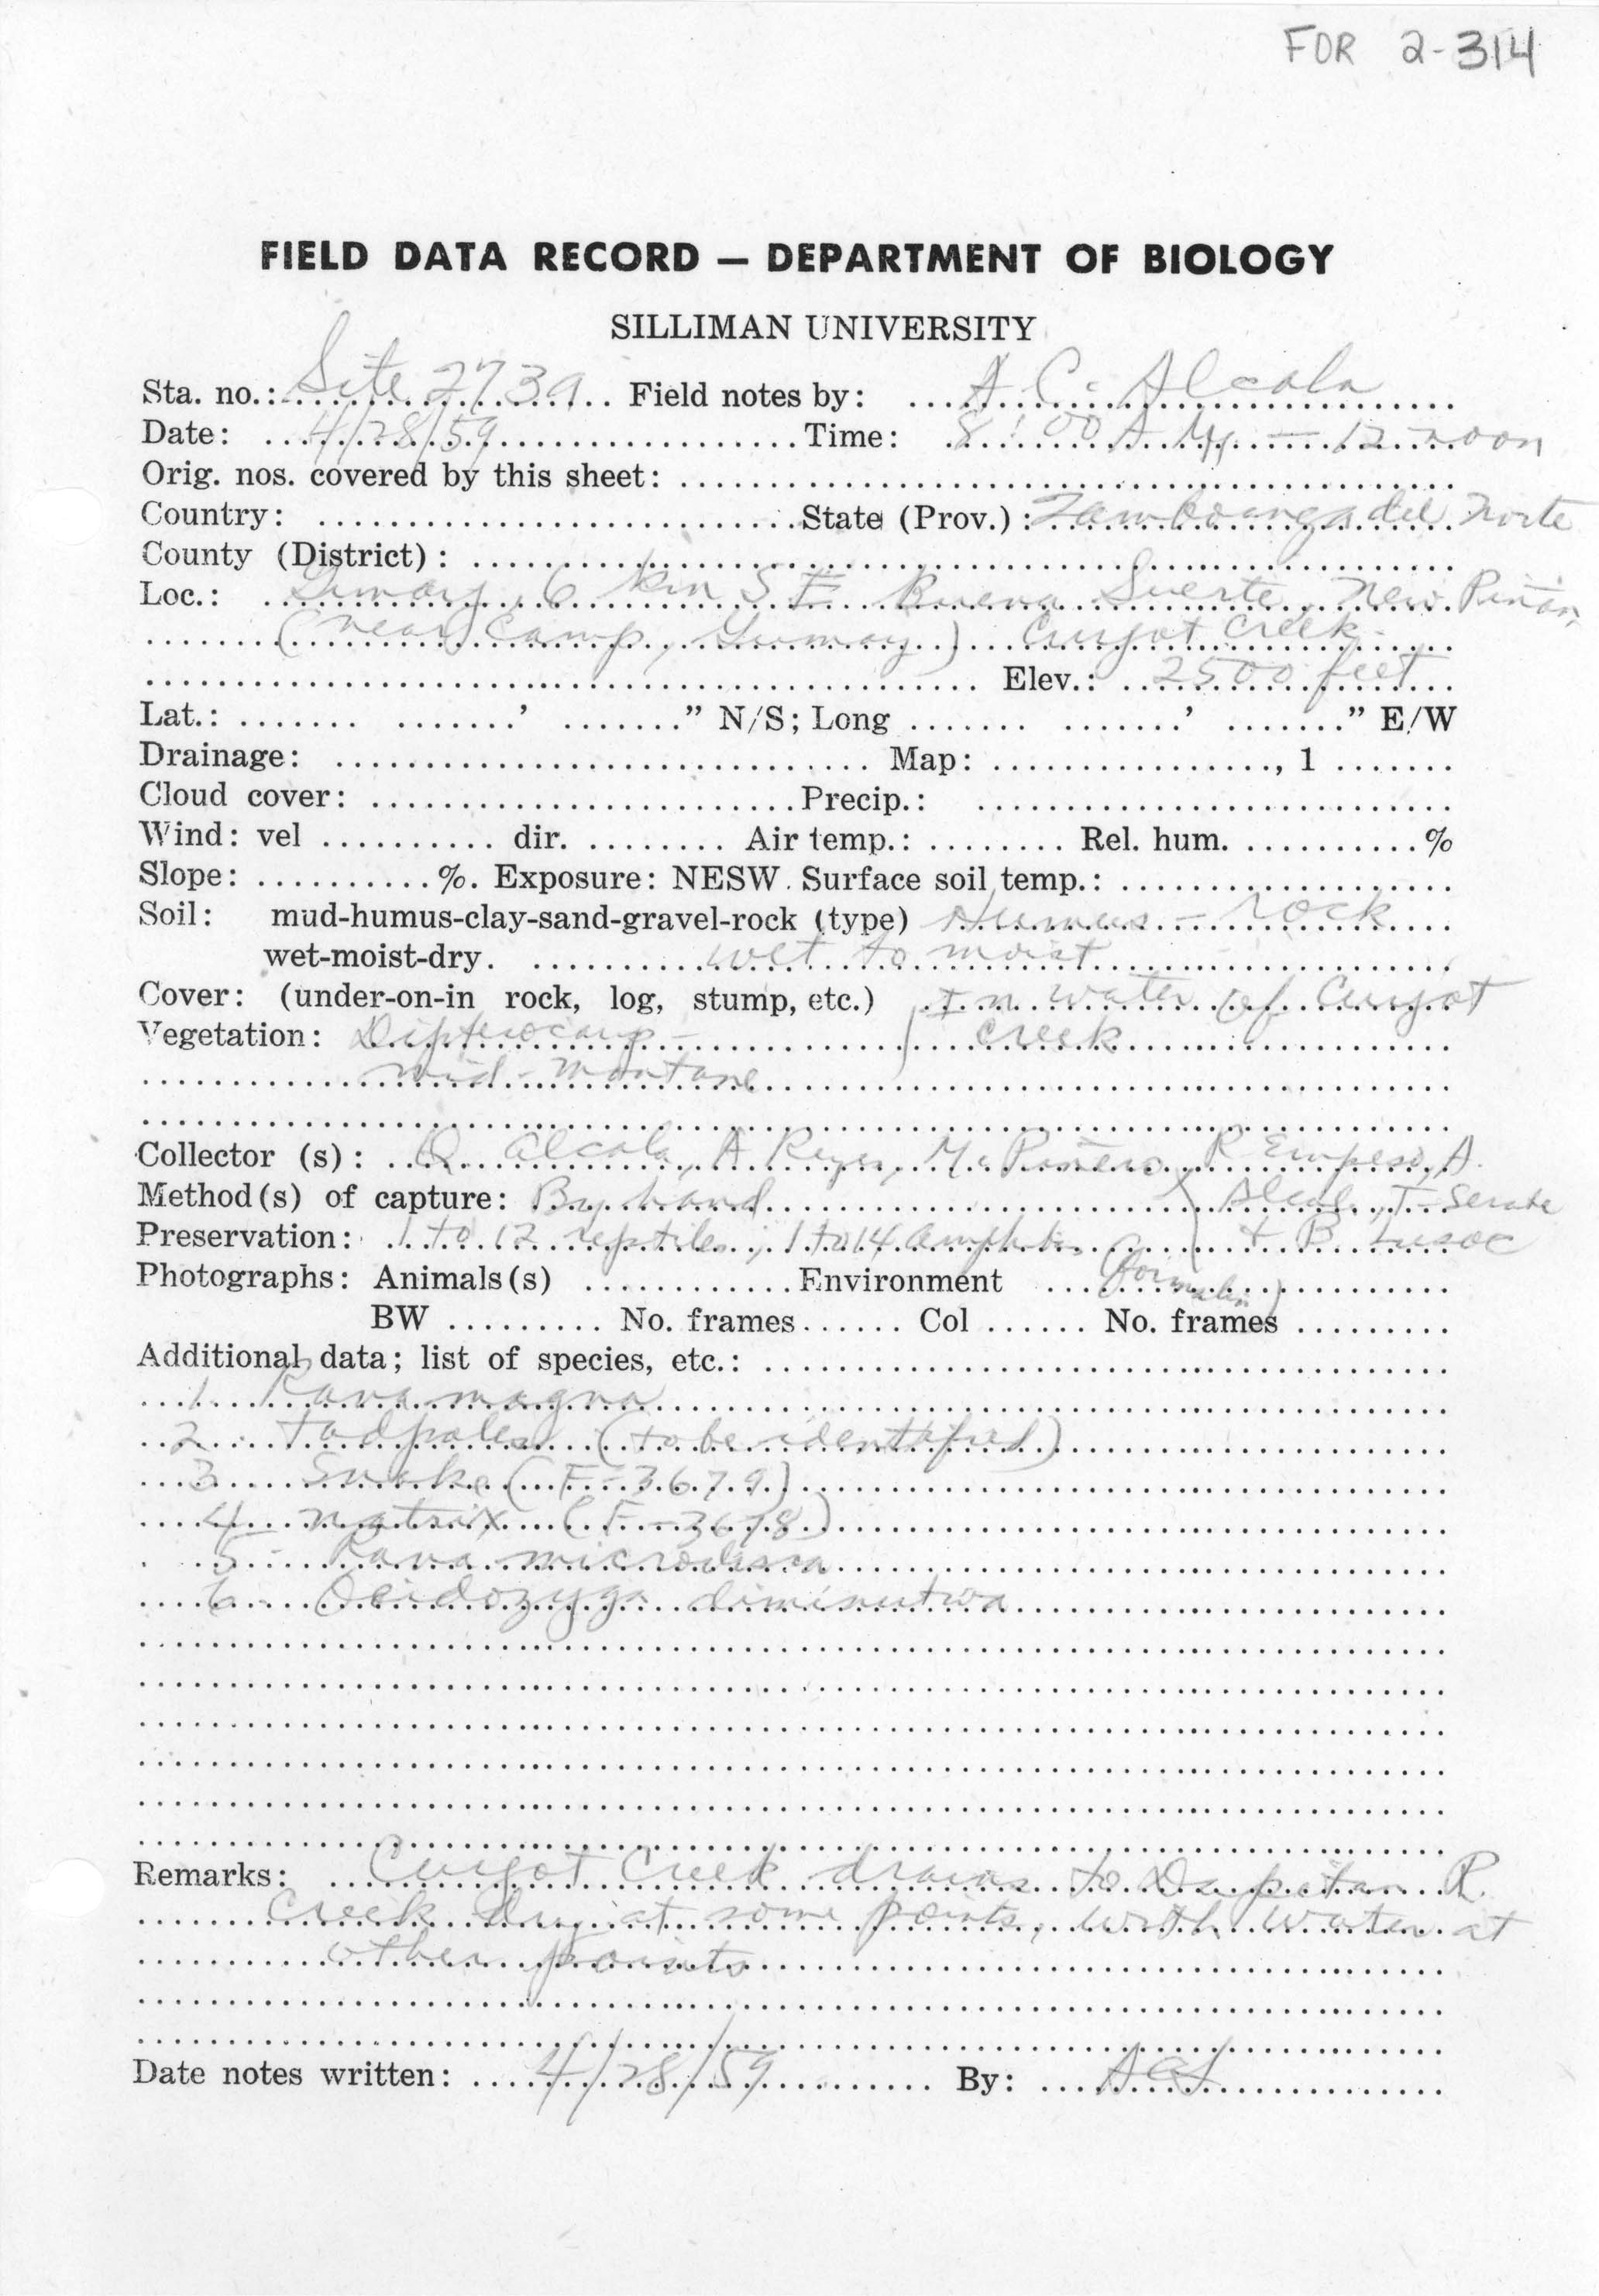 FOR 2-314
FIELD DATA RECORD — DEPARTMENT OF BIOLOGY
SILLIMAN UNIVERSITY
Sta. no.: Site 273a Field notes by: A C. Alcala
Date: 4/28/59 Time: 8:00 A.M. – 12 noon
Orig. nos. covered by this sheet:
Country: State (Prov.): Zamboanga del Norte
County (District):
Loc.: 6 km SE Buena Suerte, New Piñan,
(near Camp, ) Curyot Creek.
Elev.: 2500 feet
Lat.: ' " N/S; Long ' " E/W
Drainage: Map: , 1
Cloud cover: Precip.:
Wind: vel dir. Air temp.: Rel. hum. %
Slope: %. Exposure: NESW. Surface soil temp.:
Soil: mud-humus-clay-sand-gravel-rock (type) Humus – rock
wet-moist-dry. wet to moist
Cover: (under-on-in rock, log, stump, etc.) In water of Curyot
Vegetation: Dipterocarp – creek
mid-montane
Collector (s): Q. Alcala, A Reyes, M. Piñero, R Empeso, A.
Method(s) of capture: By hand Alcala, T. Serate
Preservation: 1 to 12 reptiles; 1 to 14 amphibs + B. Lusoc
Photographs: Animals(s) Environment (formalin)
BW No. frames Col No. frames
Additional data; list of species, etc.:
1. Rana magna
2. tadpoles (to be identified)
3. Snake (F-3679)
4 – natrix (F-3678)
5 – Rana microdisca
6. Ooidozyga diminutiva
Remarks: Curyot Creek drains to Dapitan R.
Creek dry at some points, with water at
other points
Date notes written: 4/28/59 By: